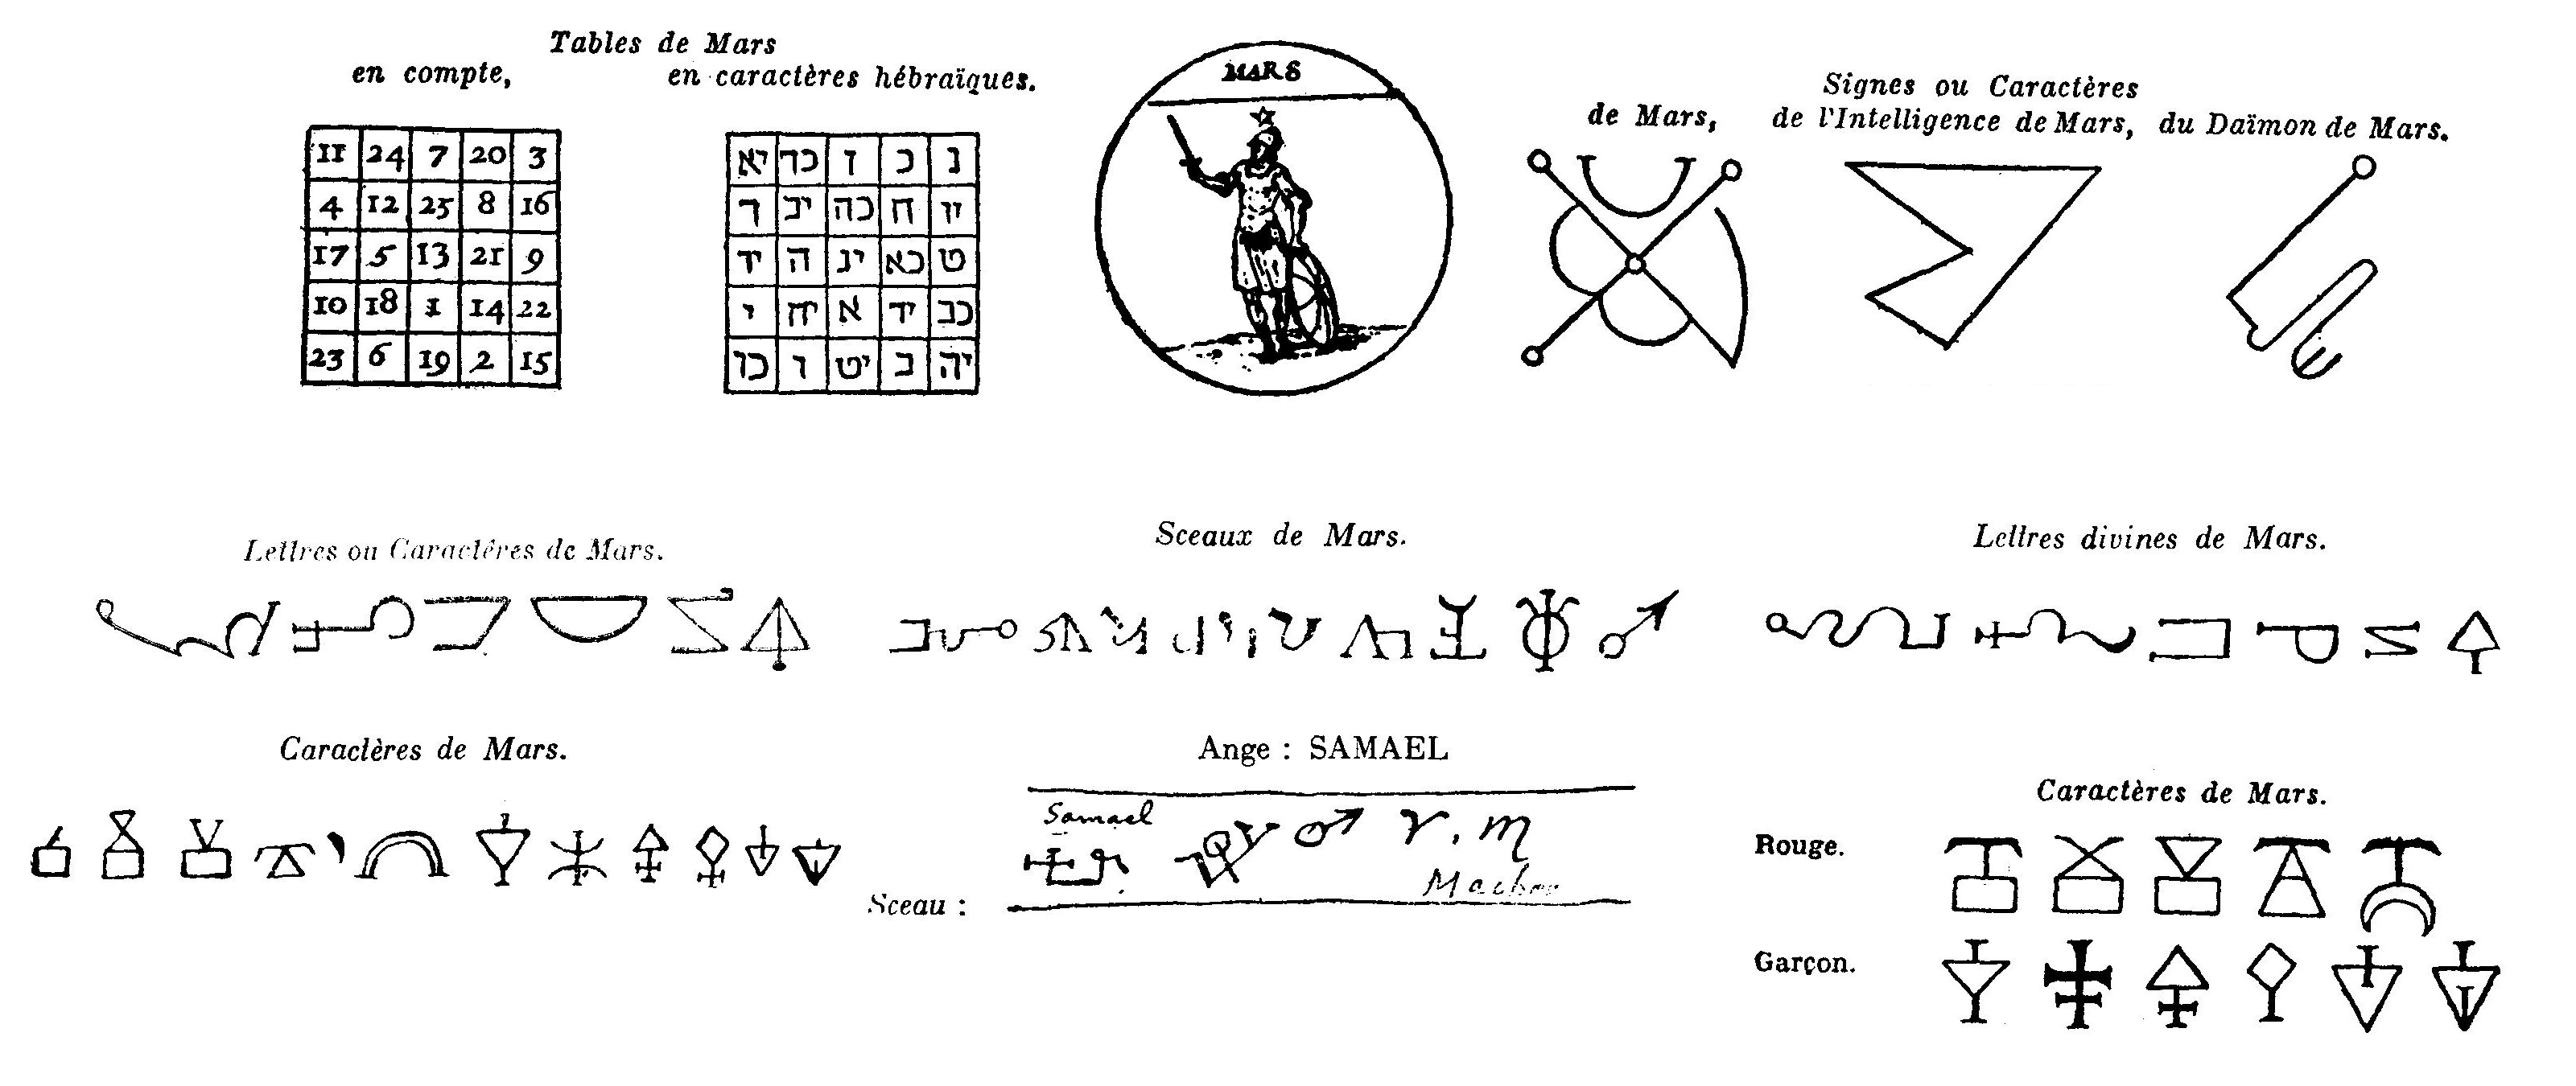 Tables de Mars
en compte,
en caractères hébraïques.
11 24 7 20 3
4 12 25 8 16
17 5 13 21 9
10 18 1 14 22
23 6 19 2 15
יא כד ז כ ג
ד יב כה ח יו
יז ה יג כא ט
י יח א יד כב
כו ו יט ב יה
MARS
Signes ou Caractères
de Mars,
de l'Intelligence de Mars,
du Daïmon de Mars.
Lettres ou Caractères de Mars.
Sceaux de Mars.
♂
Lettres divines de Mars.
Caractères de Mars.
Ange : SAMAEL
Samael
♂ ♈ . ♏
Sceau :
Caractères de Mars.
Rouge.
Garçon.